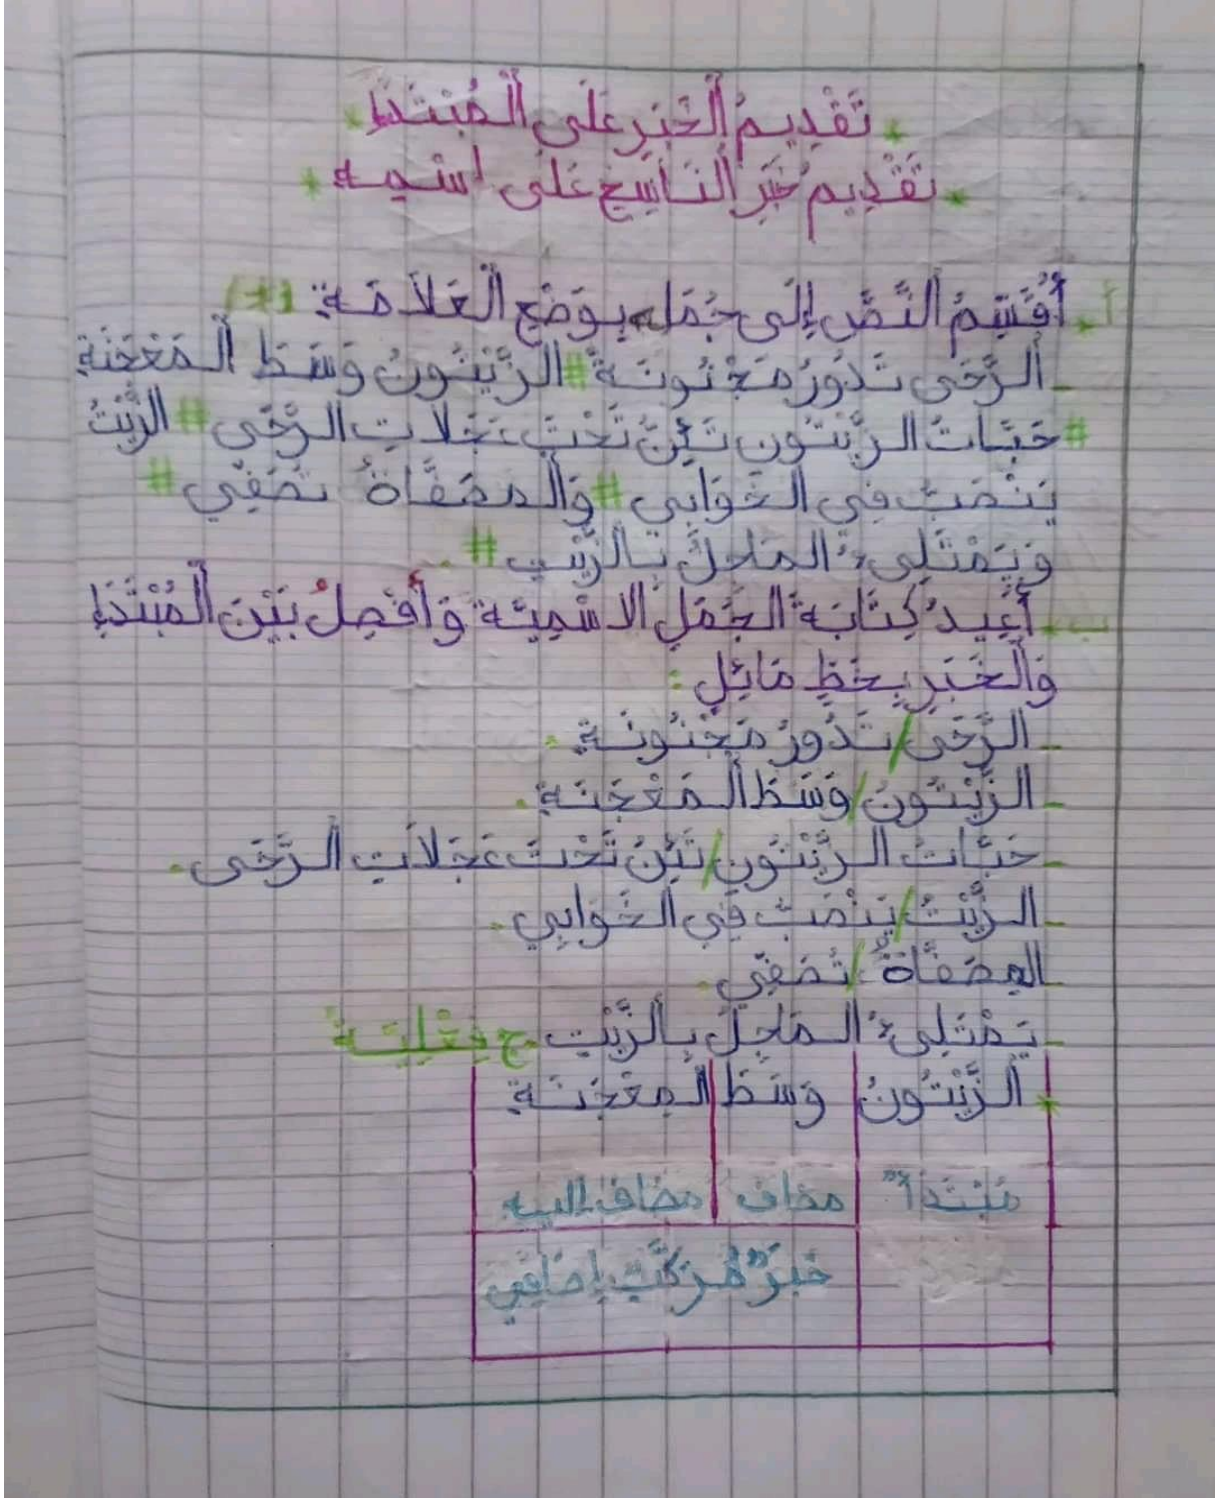 * تَقْدِيمُ الْخَبَرِ عَلَى الْمُبْتَدَإِ *
* تَقْدِيمُ خَبَرِ النَّاسِخِ عَلَى اسْمِهِ *
أ - أُقَسِّمُ النَّصَّ إِلَى جُمَلٍ بِوَضْعِ الْعَلَامَةِ (#)
- الرَّحَى تَدُورُ مَجْنُونَةً # الزَّيْتُونُ وَسَطَ الْمَعْجَنَةِ
# حَبَّاتُ الزَّيْتُونِ تَئِنُّ تَحْتَ عَجَلَاتِ الرَّحَى # الزَّيْتُ
يَنْصَبُّ فِي الْخَوَابِي # وَالْمِصْفَاةُ تُصَفِّي #
وَيَمْتَلِئُ الْمَاجِلُ بِالزَّيْتِ # .
ب - أُعِيدُ كِتَابَةَ الْجُمَلِ الاسْمِيَّةِ وَأَفْصِلُ بَيْنَ الْمُبْتَدَإِ
وَالْخَبَرِ بِخَطٍّ مَائِلٍ :
- الرَّحَى / تَدُورُ مَجْنُونَةً .
- الزَّيْتُونُ / وَسَطَ الْمَعْجَنَةِ .
- حَبَّاتُ الزَّيْتُونِ / تَئِنُّ تَحْتَ عَجَلَاتِ الرَّحَى .
- الزَّيْتُ / يَنْصَبُّ فِي الْخَوَابِي .
- الْمِصْفَاةُ / تُصَفِّي .
- يَمْتَلِئُ الْمَاجِلُ بِالزَّيْتِ ج فِعْلِيَّة
* الزَّيْتُونُ وَسَطَ الْمَعْجَنَةِ
مُبْتَدَأٌ مضاف مضاف إليه
خَبَرٌ مُرَكَّبٌ إِضَافِي